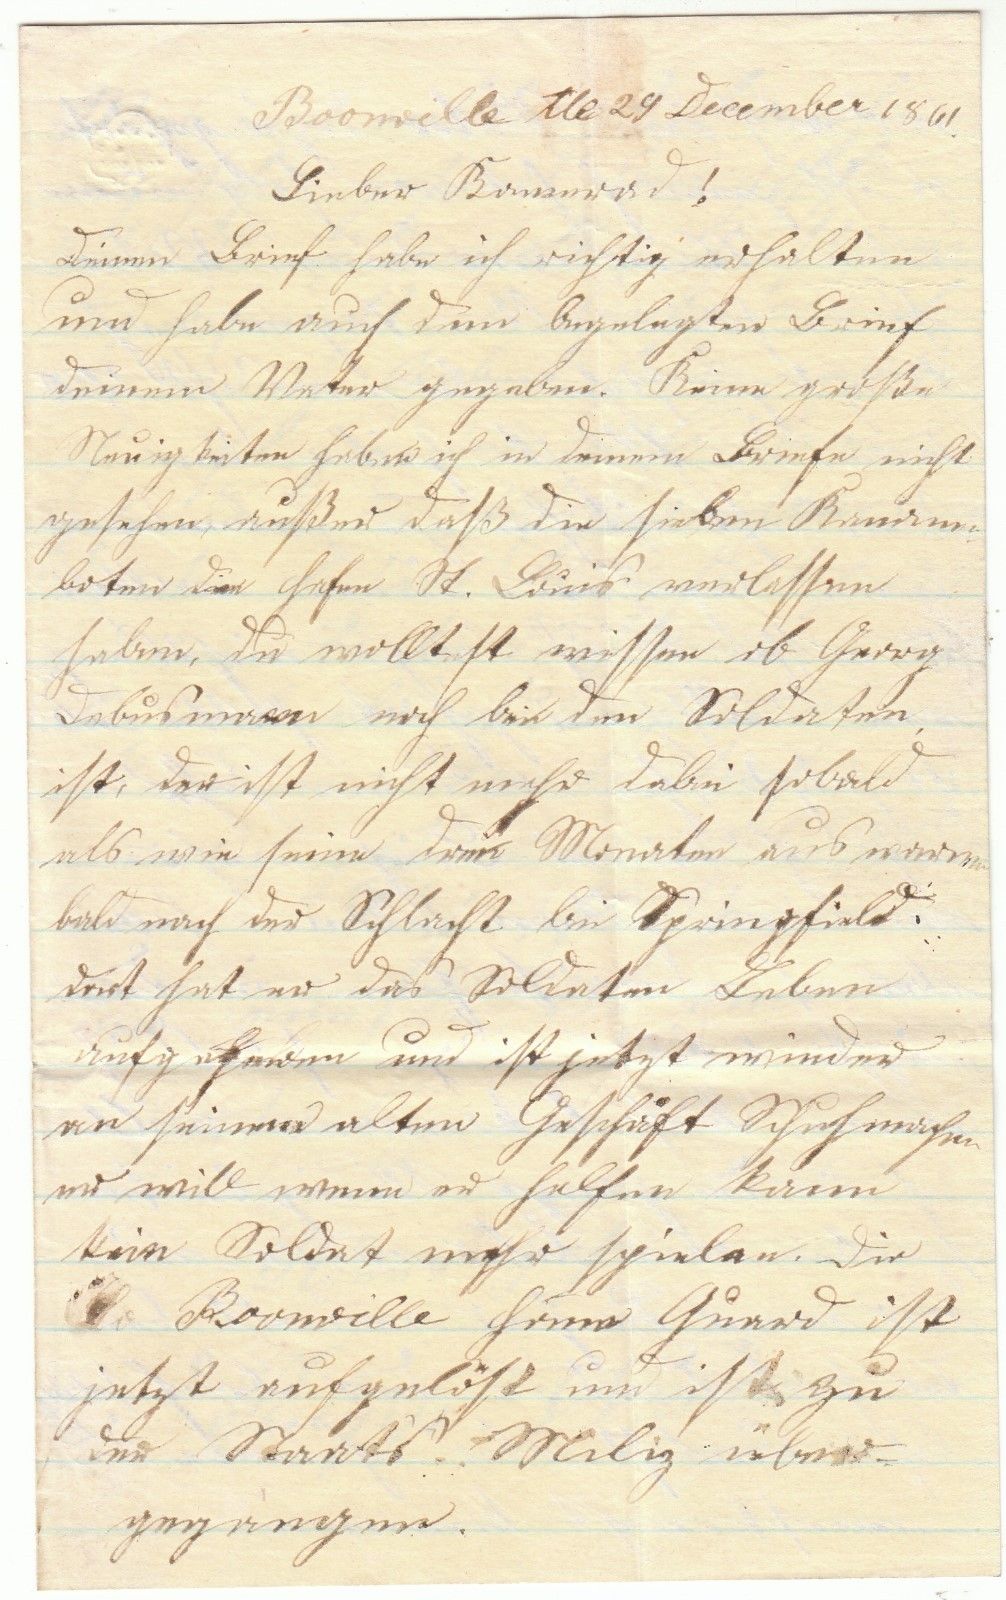 Boonville the 29 December 1861.
Lieber Kamerad!
Deinen Brief habe ich richtig erhalten
und habe auch den begelegten Brief
deinem Vater gegeben. Keine große
Neuigkeiten haben ich in deinem Briefe nicht
gesehen, außer daß die sieben Kanonen-
boten den Hafen St. Louis verlassen
haben, du wolltest wissen ob Georg
Debusmann noch bei den Soldaten
ist, der ist nicht mehr dabei sobald
als wie seine drei Monaten aus waren
bald nach der Schlacht bei Springfield.
dort hat er das Soldaten Leben
aufgegeben und ist jetzt wieder
an seinem alten Geschäft Schuhmachen
er will wenn er helfen kann
kein Soldat mehr spielen. Die
Boonville Home Guard ist
jetzt aufgelöst und ist zu
der Staats Miliz über-
gegangen.